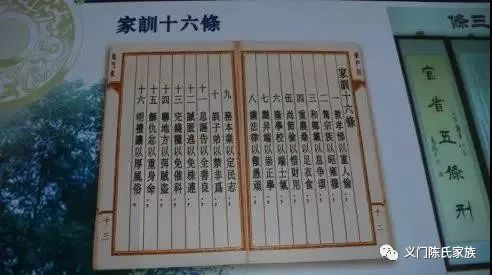 家訓十六條
家訓十六條
一 敦孝悌以重人倫；
二 篤宗族以昭雍穆；
三 和鄉黨以息爭頌；
四 重農桑以足衣食；
伍 尚節儉以惜財用；
六 隆學校以端士氣；
七 黜異端以崇正學；
八 講法律以儆愚頑；
十二
九 務本業以定民志；
十 訓子弟以禁非為；
十一 息誣告以全善良；
十二 誡匿逃以免株連；
十三 完錢糧以免催科；
十四 聯地方以弭賊盜；
十五 解仇忿以重身命；
十六 明禮讓以厚風俗；
十三
三條
官省五條刑
义门陈氏家族